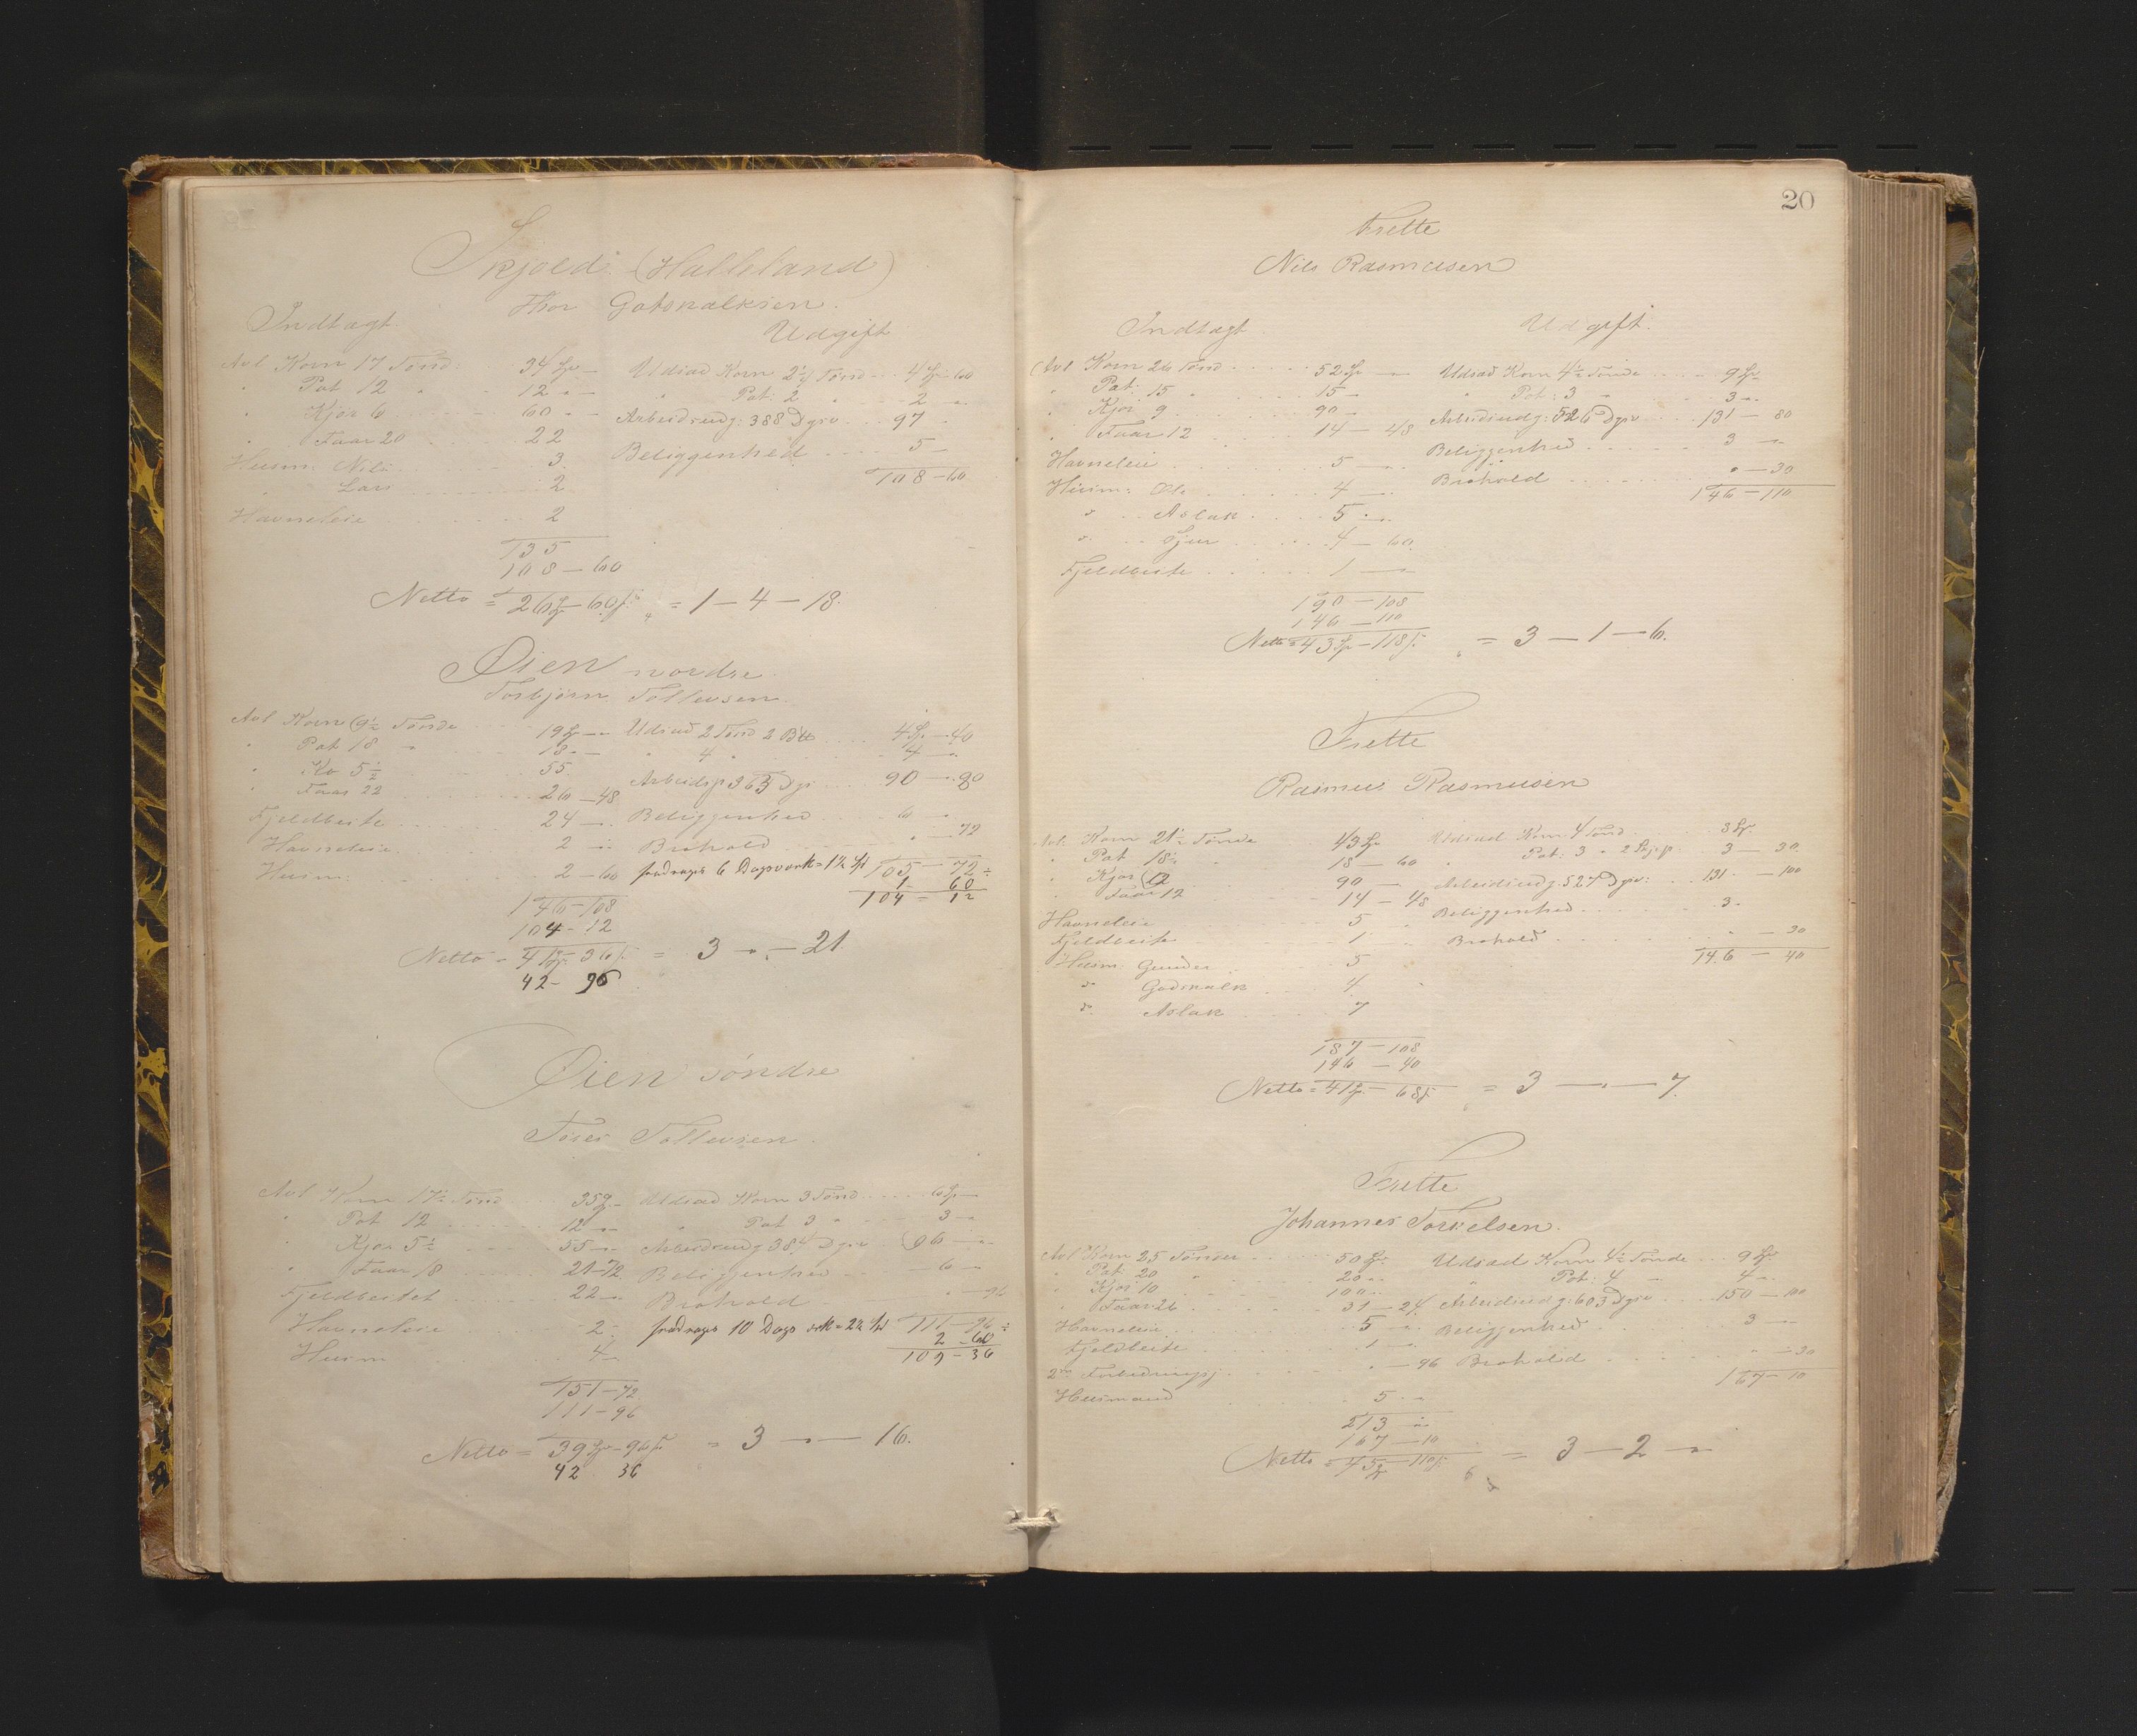 Skjold (Halleland)
Thor Gotskalksen.
Indtægt. Udgift
Avl Korn 17 Tønd: 34 Sp — Udsæd Korn 2¼ Tønd 4 Sp 60
" Pot 12 " 12 " — " Pot: 2 " 2 "
" Kjør 6 60 " — Arbeidsudg: 388 Dgsv 97 "
" Faar 20 22 Beliggenhed 5 —
Husm: Nils 3 108 — 60
" Lars 2
Havneleie 2
135
108 — 60
Netto = 26 Sp — 60 s = 1 — 4 — 18.
Øien nordre
Torbjørn Tollevsen.
Avl Korn 9½ Tønde 19 Sp — Udsæd 2 Tønd 2 4 Sp — 40
" Pot 18 " 18 " — " 4 " 4 — "
" Ko 5½ 55 Arbeidsp 363 Dgs 90 — 90
" Faar 22 26 — 48 Beliggenhed 6 "
Fjeldbeite 24 — Brohold " — 72
Havneleie 2 — fradrages 6 Dagsverk = 1½ Sp 105 — 72
Husm: 2 — 60 1 — 60
146 — 108 104 — 12
104 — 12
Netto = 41 Sp 36 s = 3 — " — 21
42 — 96
Øien søndre
Tøres Tollevsen.
Avl Korn 17½ Tønd 35 Sp — Udsæd Korn 3 Tønd 6 Sp —
" Pot 12 12 " — " Pot 3 " 3 — "
" Kjør 5½ 55 — Arbeidsudg 384 Dgsv 96 — "
" Faar 18 21 — 72 Beliggenhed 6 —
Fjeldbeitet 22 — Brohold " — 96
Havneleie 2 fradrages 10 Dags = 2½ Sp 111 — 96
Husm 4 2 — 60
151 — 72 109 — 36
111 — 96
Netto = 39 Sp — 96 s = 3 — " — 16.
42 36
20
Frette
Nils Rasmusen
Indtægt Udgift.
Avl Korn 26 Tønd 52 Sp — Udsæd Korn 4½ Tønde 9 Sp
" Pot: 15 " 15 — " Pot: 3 " 3 "
" Kjør 9 90 — Arbeidsudg: 526 Dgsv 131 — 80
" Faar 12 14 — 48 Beliggenhed 3 — "
Havneleie 5 — Brohold " — 30
Husm: Ole 4 — 146 — 110
" Aslak 5 "
" Sjur 4 — 60
Fjeldbeite 1 —
190 — 108
146 — 110
Netto = 43 Sp — 118 s = 3 — 1 — 6.
Frette
Rasmus Rasmusen
Avl. Korn 21½ Tønde 43 Sp Udsæd Korn 4 Tønd 8 Sp.
" Pat 18½ 18 — 60 " Pot: 3 " 2 Skjep 3 — 30
" Kjør 9 90 — Arbeidsudg. 527 Dgsv: 131 — 100
" Faar 12 14 — 48 Beliggenhed 3 "
Havneleie 5 Brohold " — 30
Fjeldbeite 1 146 — 40
Husm: Gunder 5
" Godskalk 4
" Aslak 7
187 — 108
146 — 40
Netto = 41 Sp — 68 s = 3 — " — 7.
Frette
Johannes Torkelsen.
Avl Korn 25 Tønder 50 Sp. Udsæd Korn 4½ Tønde 9 Sp
" Pot: 20 " 20 " Pot: 4 " 4 "
" Kjør 10 100 " Arbeidsudg: 603 Dgsv 150 — 100
" Faar 26 31 — 24 Beliggenhed 3 —
Havneleie 5 " Brohold " — 30
Fjeldbeite 1 — 167 — 10
" — 96
Husmand 5 "
213 "
167 — 10
Netto = 45 Sp — 110 s = 3 — 2 — "